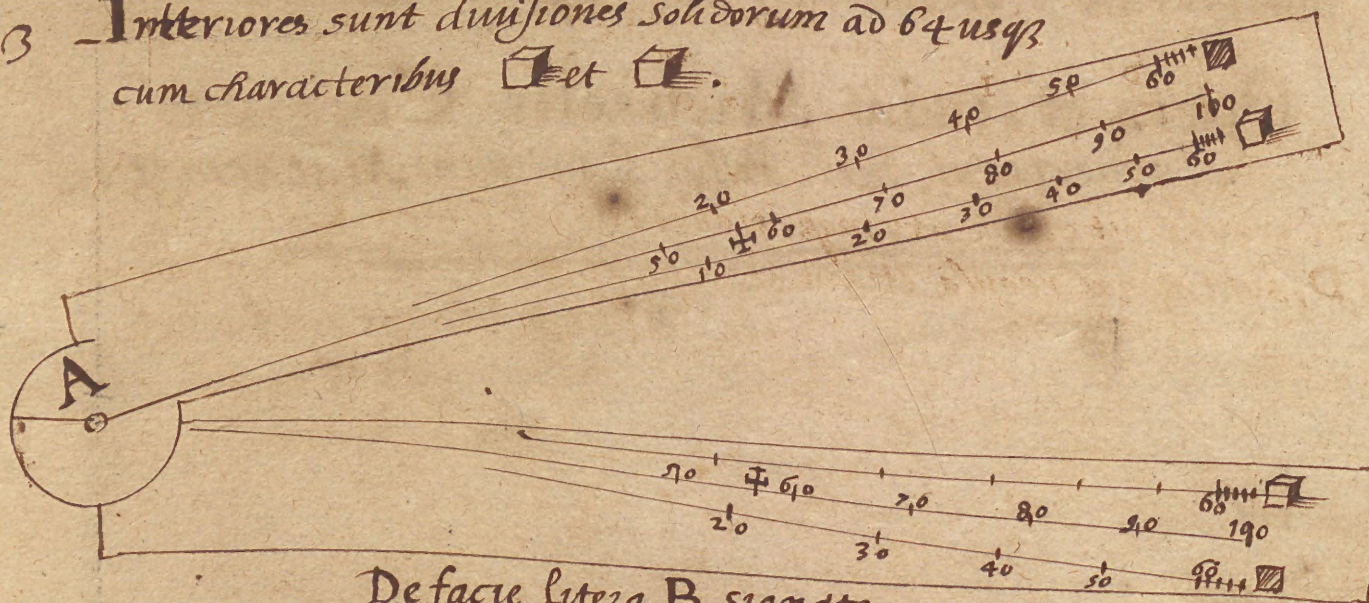 3 Interiores sunt diuisiones solidorum ad 64 usqꝫ
cum characteribus et .
A
20 30 40 50 60
50 60 70 80 90 100
10 20 30 40 50 60
60
50 60 70 80 90 100
20 30 40 50 60
De facie litera B signata